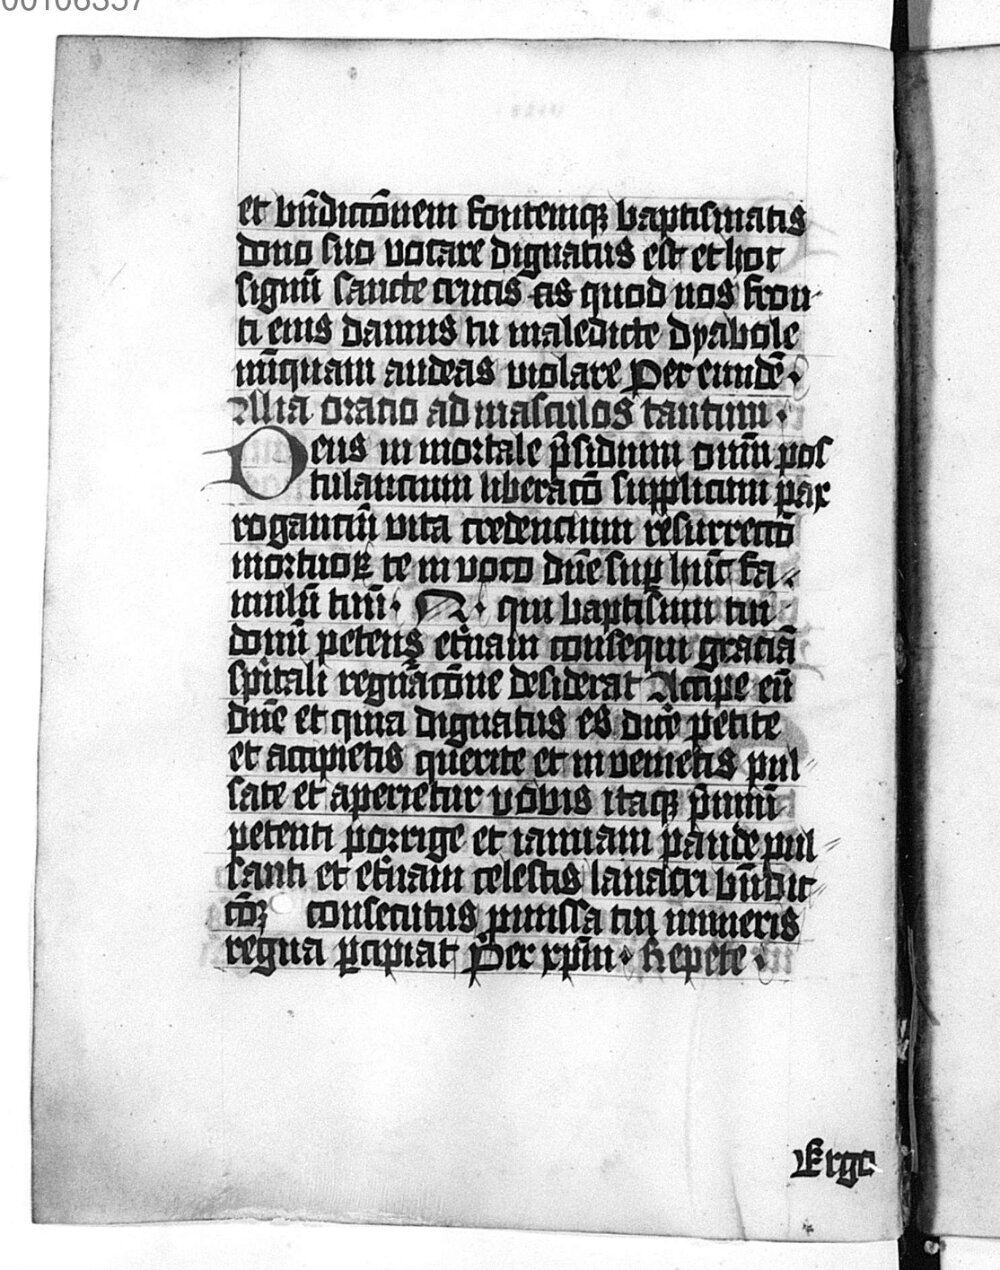 00106357
et bñdictōnem fontemqꝫ baptismatis
dono suo vocare dignatus est et hoc
signū sancte crucis ✠ qđ quod nos fron
ti eius damus tu maledicte dyabole
nūquam audeas violare Per eundē ·
Alia oratio ad masculos tantum ·
Deus inmortale p̄sidium omniū pos
tulancium liberacō supplicum pax
rogantiū vita credencium resurrectō
mortuoꝝ te in voco dn̄e suꝑ hūc fa
mulū tuū · N · qui baptismi tui
donū petens et̄nam consequi graciā
sp̄itali regn̄acōne desiderat Accipe eū
dn̄e et quia dignatus es dicē petite
et accipietis querite et invenietis pul
sate et aperietur vobis itaqꝫ p̄mium
petenti porrige et ianuam pande pul
santi et et̄nam celestis lauacri bn̄dic
cōꝫ consecutus pmissa tui muneris
regna ꝑcipiat Per xp̄m · Repete ·
Ergo